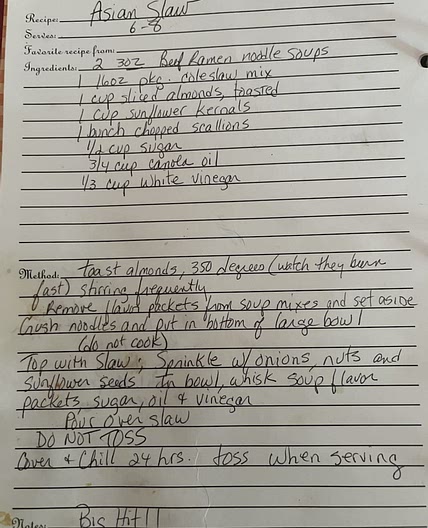 Recipe: Asian Slaw
Serves: 6-8
Favorite recipe from:
Ingredients: 2 3oz Beef Ramen noodle soups
1 16oz pkg. coleslaw mix
1 cup sliced almonds, toasted
1 cup sunflower kernals
1 bunch chopped scallions
1/2 cup sugar
3/4 cup canola oil
1/3 cup white vinegar
Method: toast almonds, 350 degrees (watch they burn
fast) stirring frequently
Remove flavor packets from soup mixes and set aside
Crush noodles and put in bottom of large bowl
(do not cook)
Top with Slaw; Sprinkle w/onions, nuts and
sunflower seeds. In bowl, whisk soup flavor
packets, sugar, oil & vinegar
Pour over slaw
DO NOT TOSS
Cover & Chill 24 hrs. toss when serving
Notes: Big Hit!!